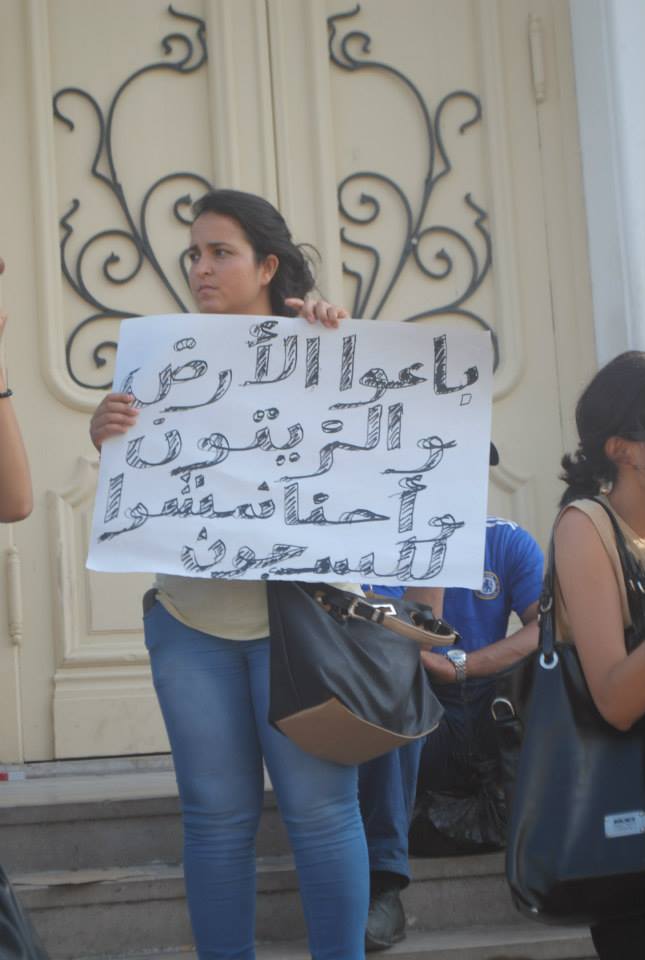 باعوا الأرض
والزيتون
وأحنا مشوا
للسجون